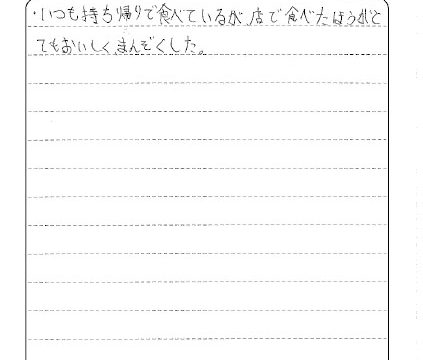 ・いつも持ち帰りで食べているが、店で食べたほうがと
てもおいしく、まんぞくした。